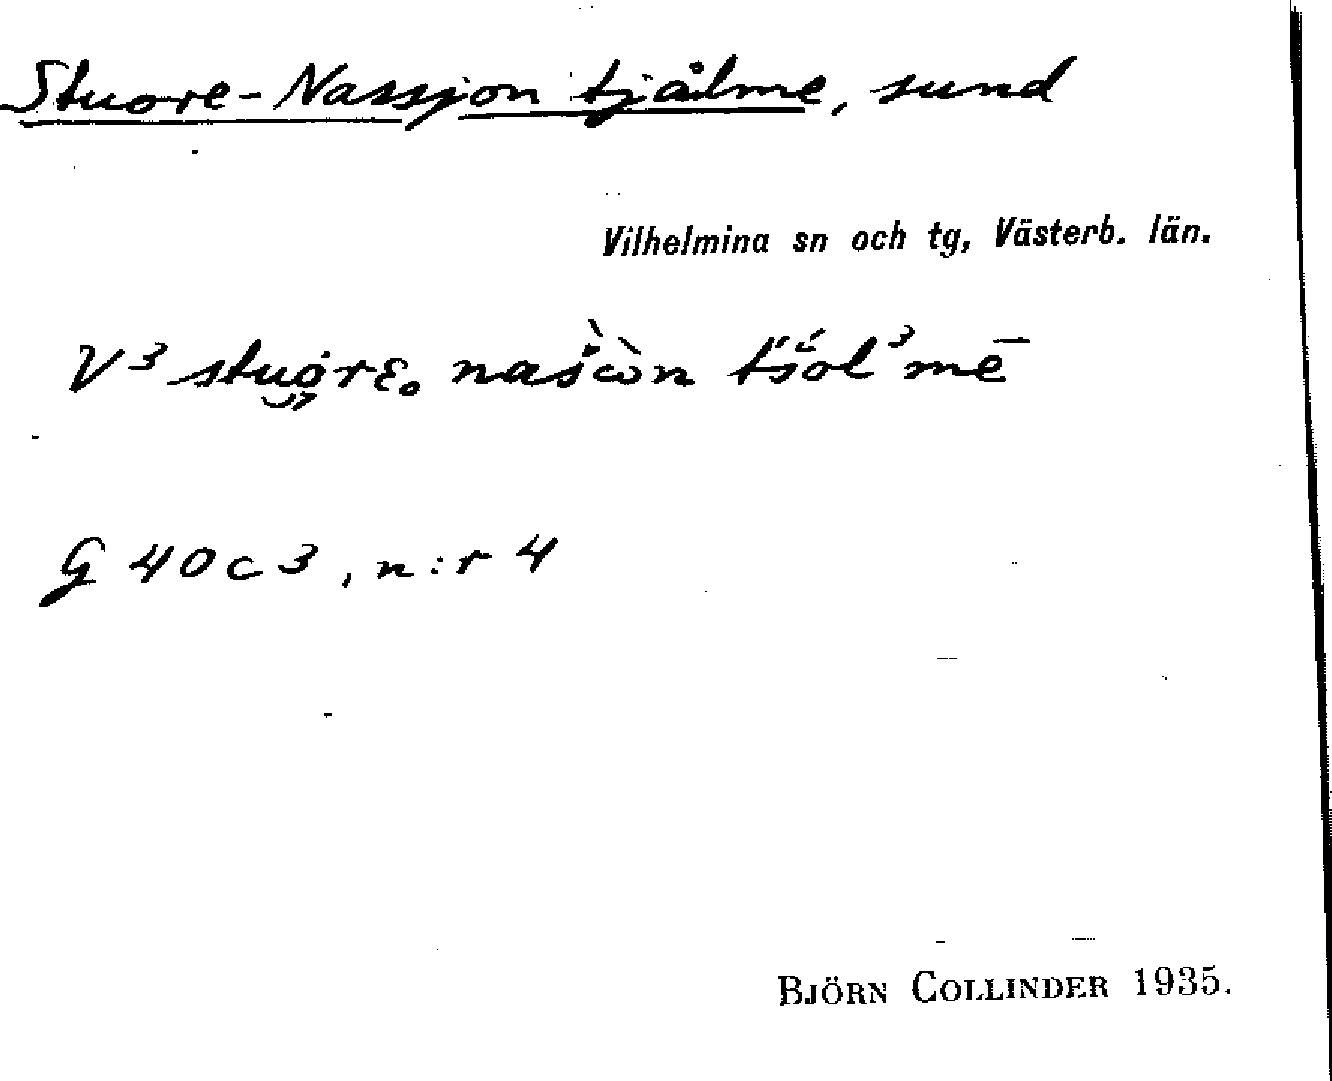 Stuore-Nassjon tjålme, sund
Vilhelmina sn och tg, Västerb. län.
V3
G 40c3, n:r 4
BJÖRN COLLINDER 1935.